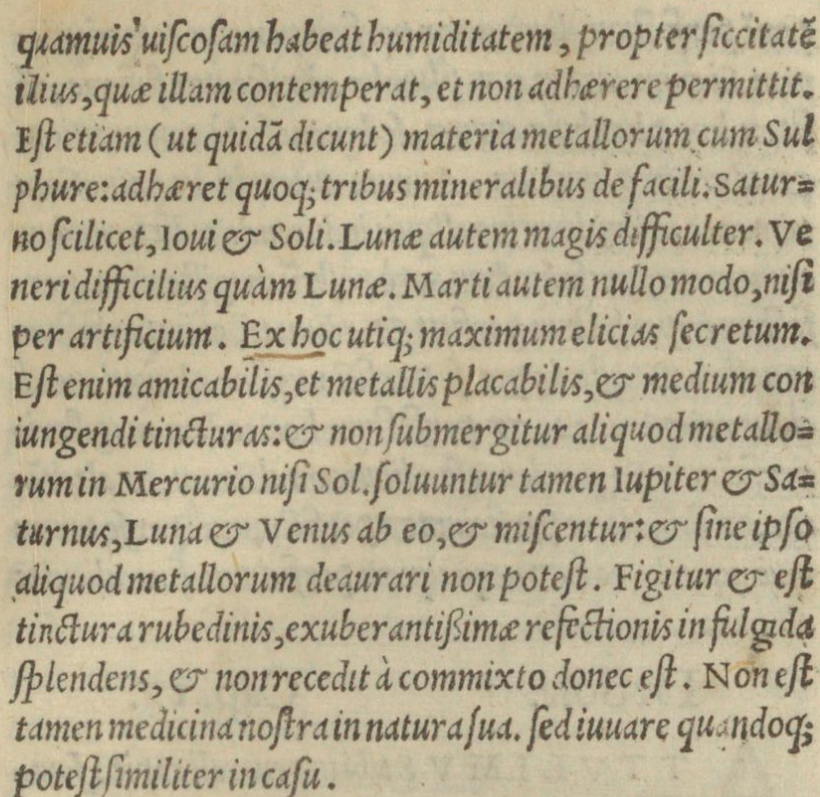 quamuis uiſcoſam habeat humiditatem, propter ſiccitatẽ
illius, quæ illam contemperat, et non adhærere permittit.
Eſt etiam (ut quidã dicunt) materia metallorum cum Sul
phure: adhæret quoq; tribus mineralibus de facili. Satur=
no ſcilicet, Ioui & Soli. Lunæ autem magis difficulter. Ve
neri difficilius quàm Lunæ. Marti autem nullo modo, niſi
per artificium. Ex hoc utiq; maximum elicias ſecretum.
Eſt enim amicabilis, et metallis placabilis, & medium con
iungendi tincturas: & non ſubmergitur aliquod metallo=
rum in Mercurio niſi Sol. ſoluuntur tamen Iupiter & Sa=
turnus, Luna & Venus ab eo, & miſcentur: & ſine ipſo
aliquod metallorum deaurari non poteſt. Figitur & eſt
tinctura rubedinis, exuberantißimæ refectionis in fulgida
ſplendens, & non recedit à commixto donec eſt. Non eſt
tamen medicina noſtra in natura ſua. ſed iuuare quandoq;
poteſt ſimiliter in caſu.